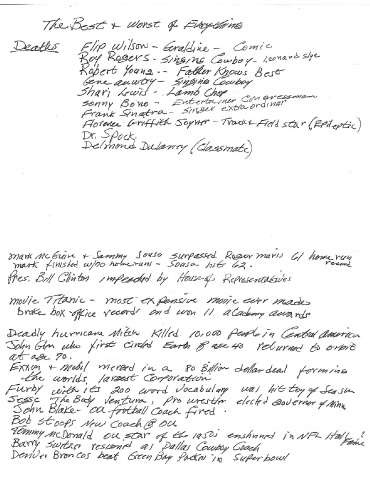 The Best & Worst of Everything
Deaths
Flip Wilson - Geraldine - Comic
Roy Rogers - Singing Cowboy - Leonard Slye
Robert Young - Father Knows Best
Gene Autry - Singing Cowboy
Shari Lewis - Lamb Chop
Sonny Bono - Entertainer Congressman
Frank Sinatra - Singer extraordinar
Florence Griffith Joyner - Track & Field star (Epileptic)
Dr. Spock
Delmond Dulanry (Classmate)
Mark McGwire & Sammy Sousa surpassed Roger Maris 61 home run record
Mark finished w/70 homeruns - Sousa hit 62.
Pres. Bill Clinton impeached by House of Representatives
Movie Titanic - most expensive movie ever made
broke box office record and won 11 academy awards
Deadly hurricane Mitch killed 10,000 people in Central America
John Glen who first circled Earth @ age 40 returned to orbit
at age 70.
Exxon & Mobil merged in a 80 Billion dollar deal forming
the worlds largest Corporation
Furby with its 200 word vocabulary was hit toy of Season
Jesse The Body Ventura, pro wrestler elected Governor of Minn
John Blake - OU football Coach fired.
Bob Stoops new Coach @ OU
Tommy McDonald OU star of the 1950s enshrined in NFL Hall Fame
Barry Switzer resigned as Dallas Cowboy Coach
Denver Broncos beat Green Bay Packers in Superbowl